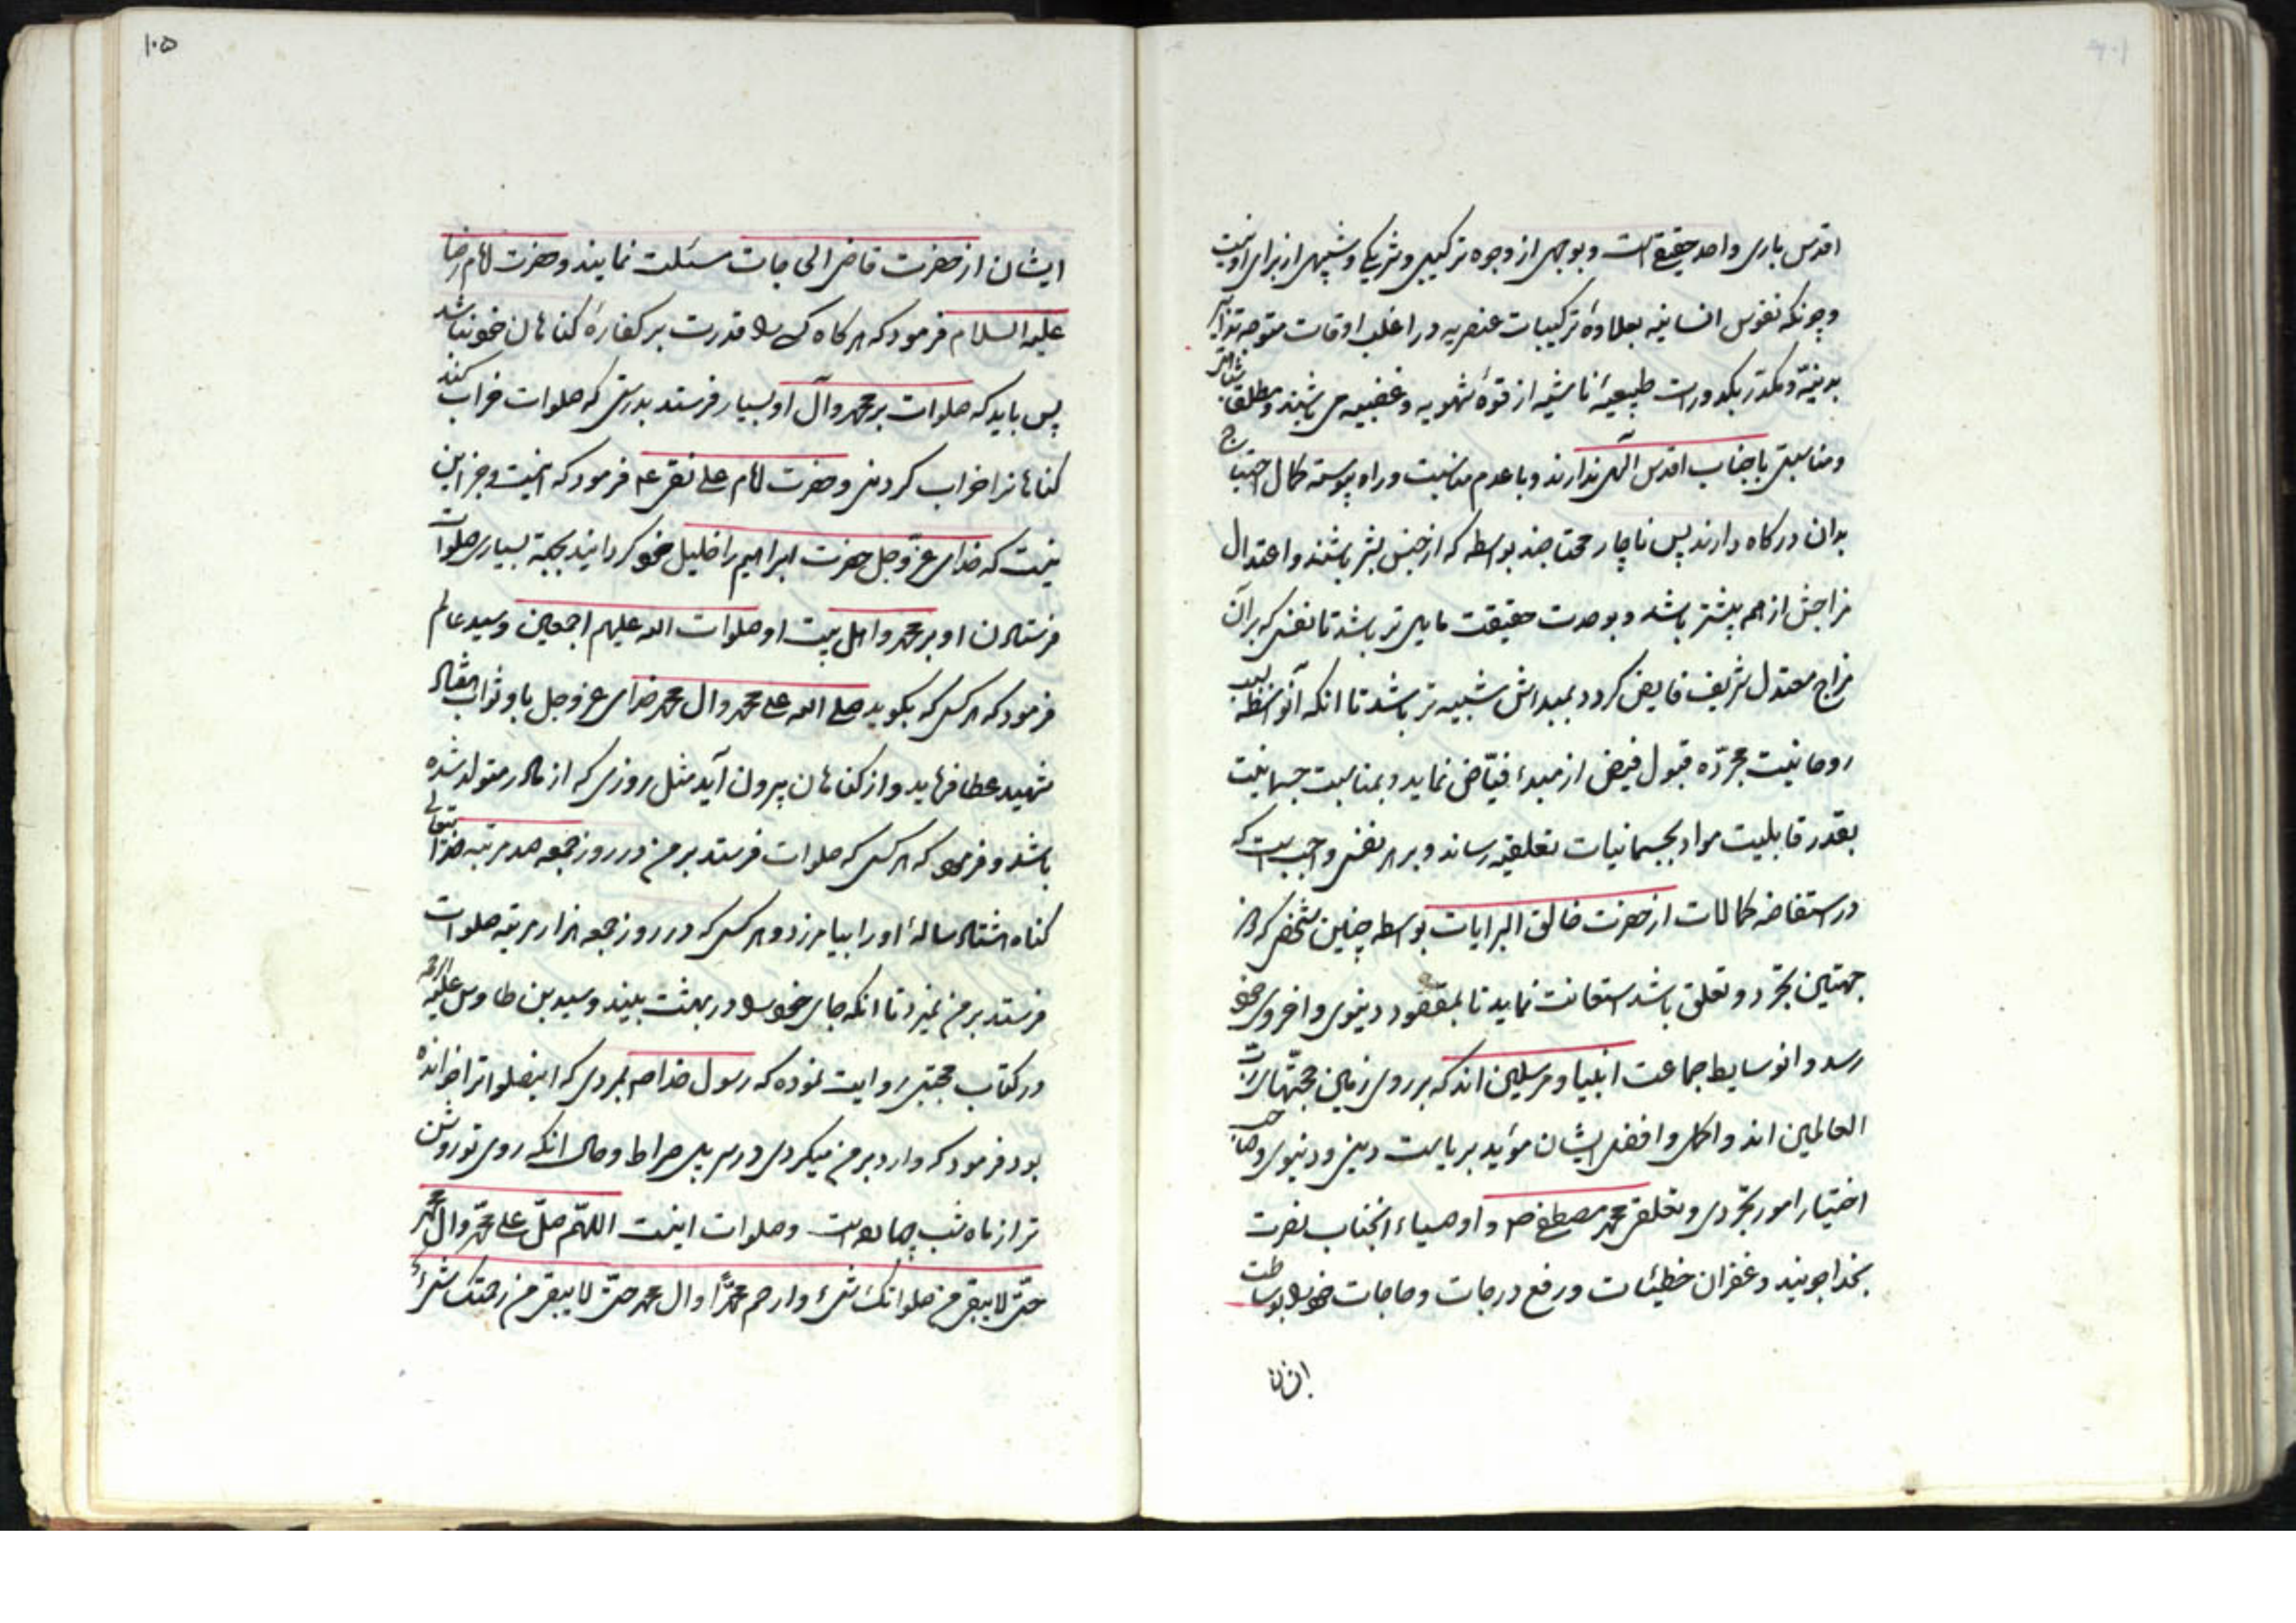 اقدس باری واحد حقیقی است و بوجهی از وجوه ترکیبی و شریکی و شبیهی از برای او نیست
و چونکه نفوس انسانیه بعلاوهٔ ترکیبات عنصریه در اغلب اوقات متوجه تدابیر
بدنیّه و مکدّر بکدورات طبیعیهٔ ناشیه از قوهٔ شهویه و غضبیه می باشند و مطلقا
و مناسبتی با جناب اقدس آلهی ندارند و با عدم مناسبت و راه پیوسته کمال احتیاج
بدان درکاه دارند پس ناچار محتاجند بواسطه که از جنس بشر باشند و اعتدال
مزاجش از همه بیشتر باشد و بوحدت حقیقت مایل تر باشد تا نفسی که بر آن
مزاج معتدل شریف فایض کردد بمبدائش شبیه تر باشد تا انکه آنواسطه بسبب
روحانیت مجرّده قبول فیض از مبدء فیّاض نماید و بمناسبت جسمانیت
بقدر قابلیت مواد بجسمانیات تعلقیه رساند و بر هر نفسی واجب است که
در استفاضه کمالات از حضرت خالق البرایات بواسطه چنین شخصی که ذو
جهتین تجرّد و تعلق باشد استعانت نماید تا بمقصود دینوی و اخروی خود
رسد و انوسایط جماعت انبیا و مرسلین اند که بر روی زمین حجّتهای ربّ
العالمین اند و اکمل و افضل ایشان مؤید بریاست دینی و دنیوی و صاحب
اختیار امور تجرّدی و تعلقی محمد مصطفی ص و اوصیاء انجناب نصرت
بخدا جویند و غفران خطیئات و رفع درجات و حاجات خود را بوساطت
ایشان
۱۰۵
ایشان از حضرت قاضی الحاجات مسئلت نمایند و حضرت امام رضا
علیه السلام فرمود که هر کاه کسی را قدرت بر کفارهٔ کناهان خود نباشد
پس باید که صلوات بر محمد و آل او بسیار فرستد بدرستی که صلوات خراب کند
کناهانرا خراب کردنی و حضرت امام علی نقی ع فرمود که اینست و جز این
نیست که خدای عزّوجل حضرت ابراهیم را خلیل خود کردانید بجهة بسیاری صلوات
فرستادن او بر محمد و اهل بیت او صلوات الله علیهم اجمعین و سید عالم
فرمود که هر کس که بکوید صلی الله علی محمد و ال محمد خدای عزوجل باو ثواب هفتاد
شهید عطا فرماید و از کناهان بیرون آید مثل روزی که از مادر متولد شده
باشد و فرمود که هر کس که صلوات فرستد بر من در روز جمعه صد مرتبه خدایتعالی
کناه هشتاد سالهٔ او را بیامرزد و هر کس که در روز جمعه هزار مرتبه صلوات
فرستد بر من نمیرد تا انکه جای خود را در بهشت بیند و سید بن طاوس علیه الرحمه
در کتاب مجتبی روایت نموده که رسول خدا ص بمردی که اینصلواترا خوانده
بود فرمود که وارد بر من میکردی در سر پل صراط و حال انکه روی تو روشن
تر از ماه شب چهارده است و صلوات اینست اللهّم صلّ علی محمّد و ال محمّد
حتّی لا یبقی من صلواتک شیء و ارحم محمّداً و ال محمد حتّی لا یبقی من رحمتک شیء